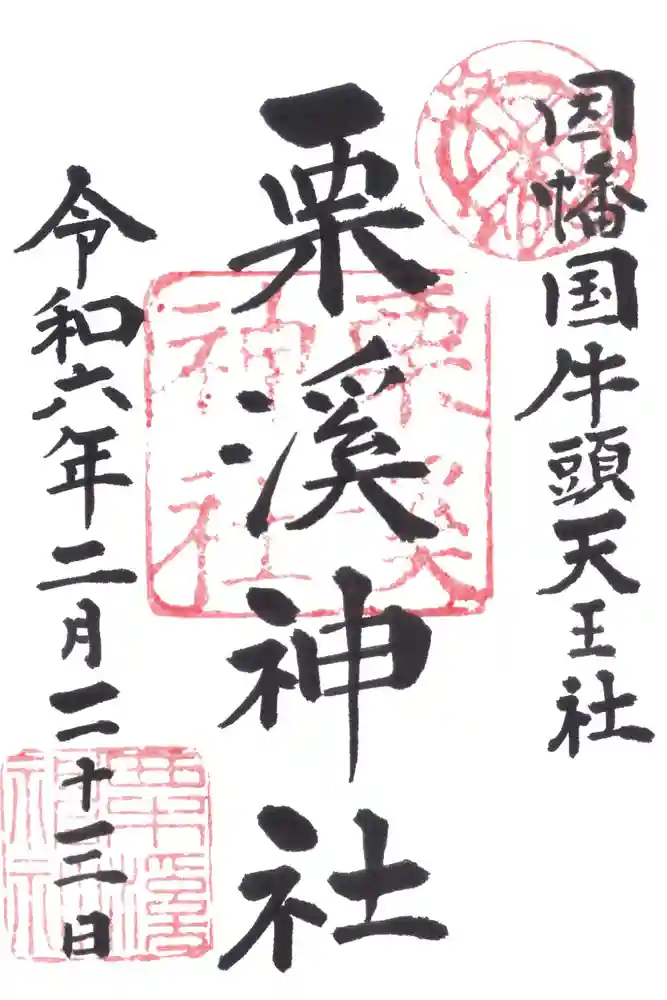 因幡国牛頭天王社
栗溪神社
令和六年二月二十三日
栗溪
神社
栗溪
神社